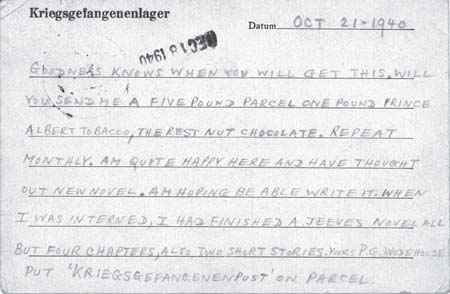 Kriegsgefangenenlager
Datum OCT 21-1940
DEC 18 1940
GOODNESS KNOWS WHEN YOU WILL GET THIS. WILL
YOU SEND ME A FIVE POUND PARCEL ONE POUND PRINCE
ALBERT TOBACCO, THE REST NUT CHOCOLATE. REPEAT
MONTHLY. AM QUITE HAPPY HERE AND HAVE THOUGHT
OUT NEW NOVEL. AM HOPING BE ABLE WRITE IT. WHEN
I WAS INTERNED, I HAD FINISHED A JEEVES NOVEL ALL
BUT FOUR CHAPTERS, ALSO TWO SHORT STORIES. YOURS P.G. WODEHOUSE
PUT 'KRIEGSGEFANGENENPOST' ON PARCEL.